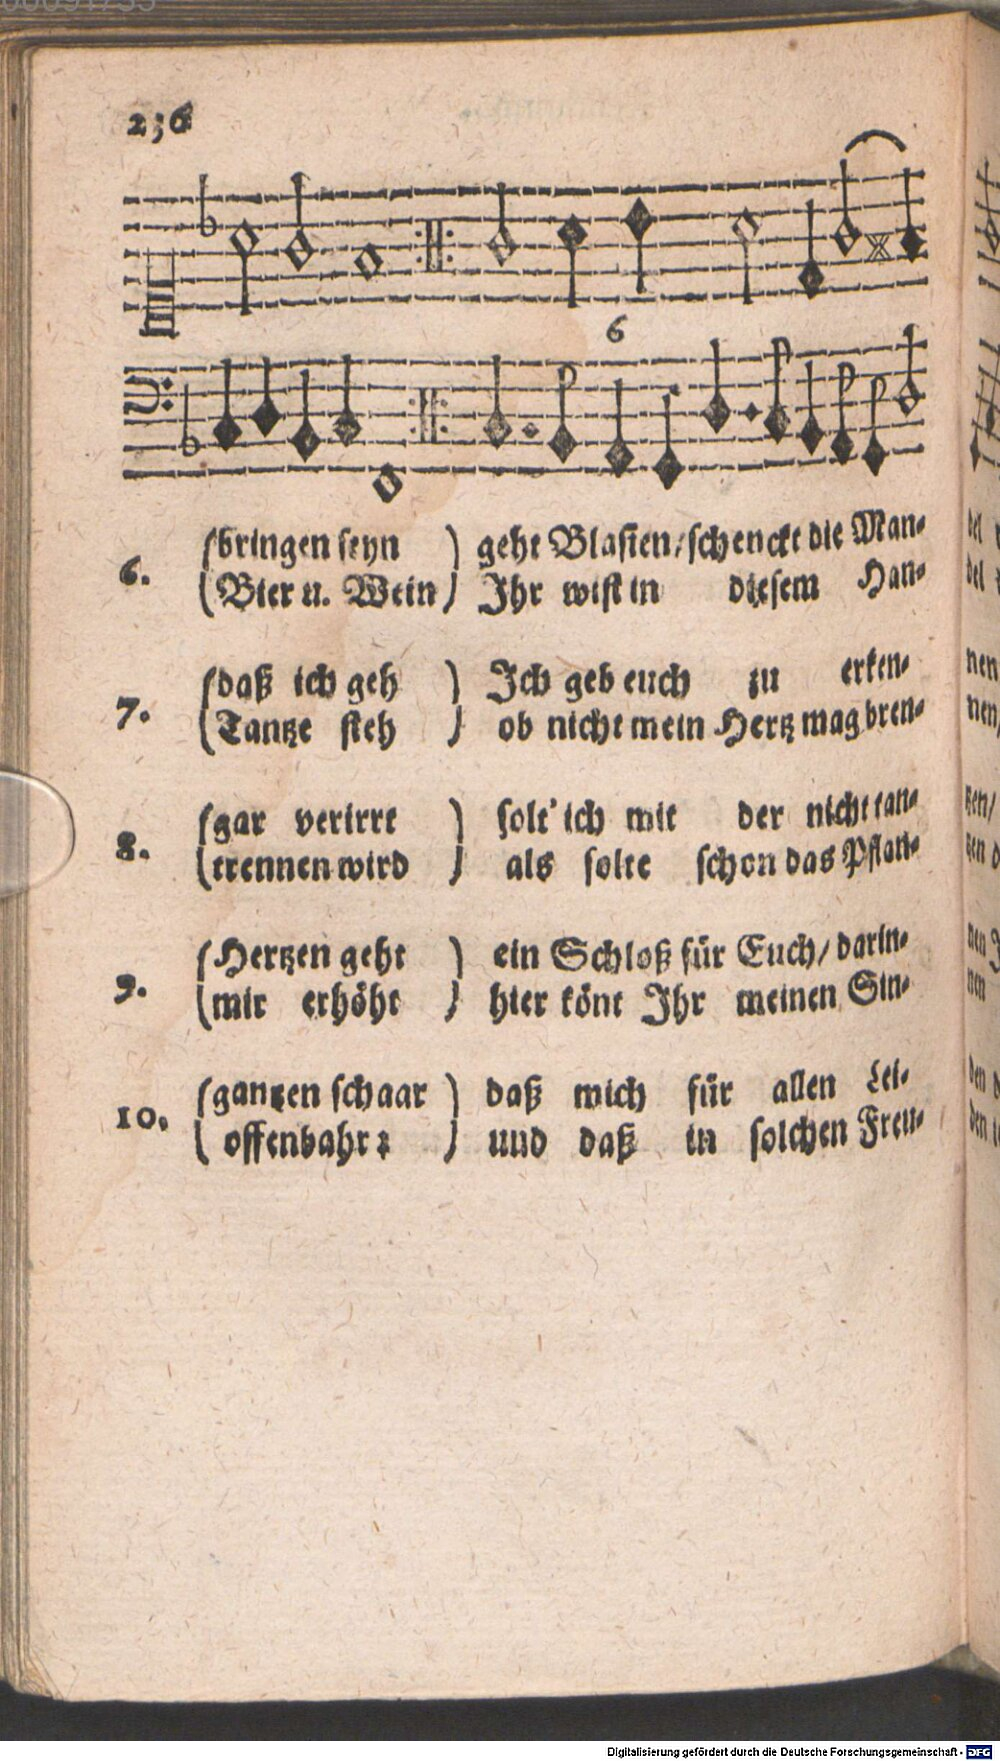 236
6
6. (bringen seyn ) gehe Blasien/schenckt die Man-
(Bier u. Wein) Ihr wist in diesem Han-
7. (daß ich geh ) Ich geb euch zu erken-
(Tantze steh ) ob nicht mein Hertz mag bren-
8. (gar verirrt ) solt' ich mit der nicht tan-
(trennen wird ) als solte schon das Pflan-
9. (Hertzen geht ) ein Schloß für Euch/ darin-
(mir erhöht ) hier könt Ihr meinen Sin-
10. (gantzen schaar ) daß mich für allen Lei-
( offenbahr: ) und daß in solchen Freu-
Digitalisierung gefördert durch die Deutsche Forschungsgemeinschaft - DFG